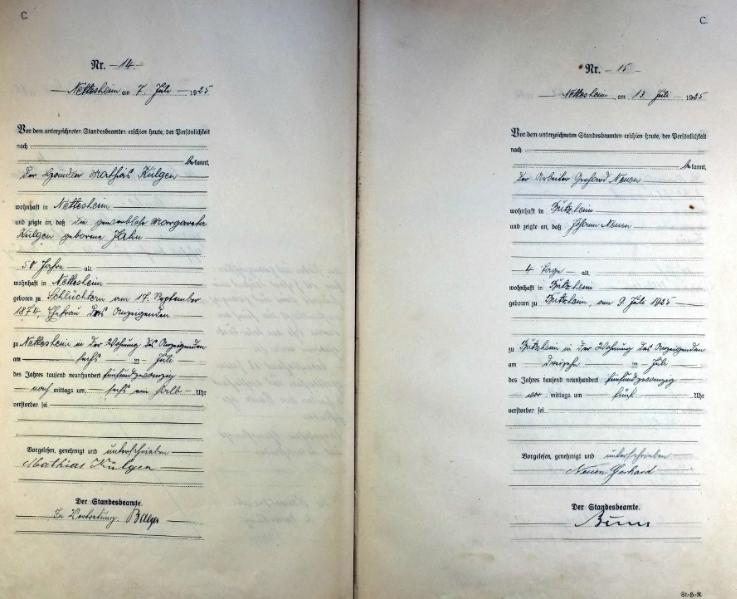 C
Nr. 14
Nettesheim am 7. Juli 1925
Vor dem unterzeichneten Standesbeamten erschien heute, der Persönlichkeit
nach
bekannt,
Der Mathias Külgen
wohnhaft in Nettesheim
und zeigte an, daß die Margareta
Külgen geborene Hahn
50 Jahre alt
wohnhaft in Nettesheim
geboren zu Schlüchtern am 17. September
1874, Ehefrau des Anzeigenden
zu Nettesheim in der Wohnung des Anzeigenden
am sechs ten Juli
des Jahres tausend neunhundert fünfundzwanzig
nach mittags um sechs ein halb Uhr
verstorben sei
Vorgelesen, genehmigt und unterschrieben
Mathias Külgen
Der Standesbeamte.
In Vertretung
C.
Nr. 15
Nettesheim am 13 Juli 1925
Vor dem unterzeichneten Standesbeamten erschien heute, der Persönlichkeit
nach
bekannt,
Der Arbeiter Gerhard Neuen
wohnhaft in Bützheim
und zeigte an, daß Johann Neuen
4 Tage alt
wohnhaft in Bützheim
geboren zu Bützheim, am 9. Juli 1925
zu Bützheim in der Wohnung des Anzeigenden
am ten Juli
des Jahres tausend neunhundert fünfundzwanzig
vor mittags um fünf Uhr
verstorben sei
Vorgelesen, genehmigt und unterschrieben
Neuen Gerhard
Der Standesbeamte.
St-H-R